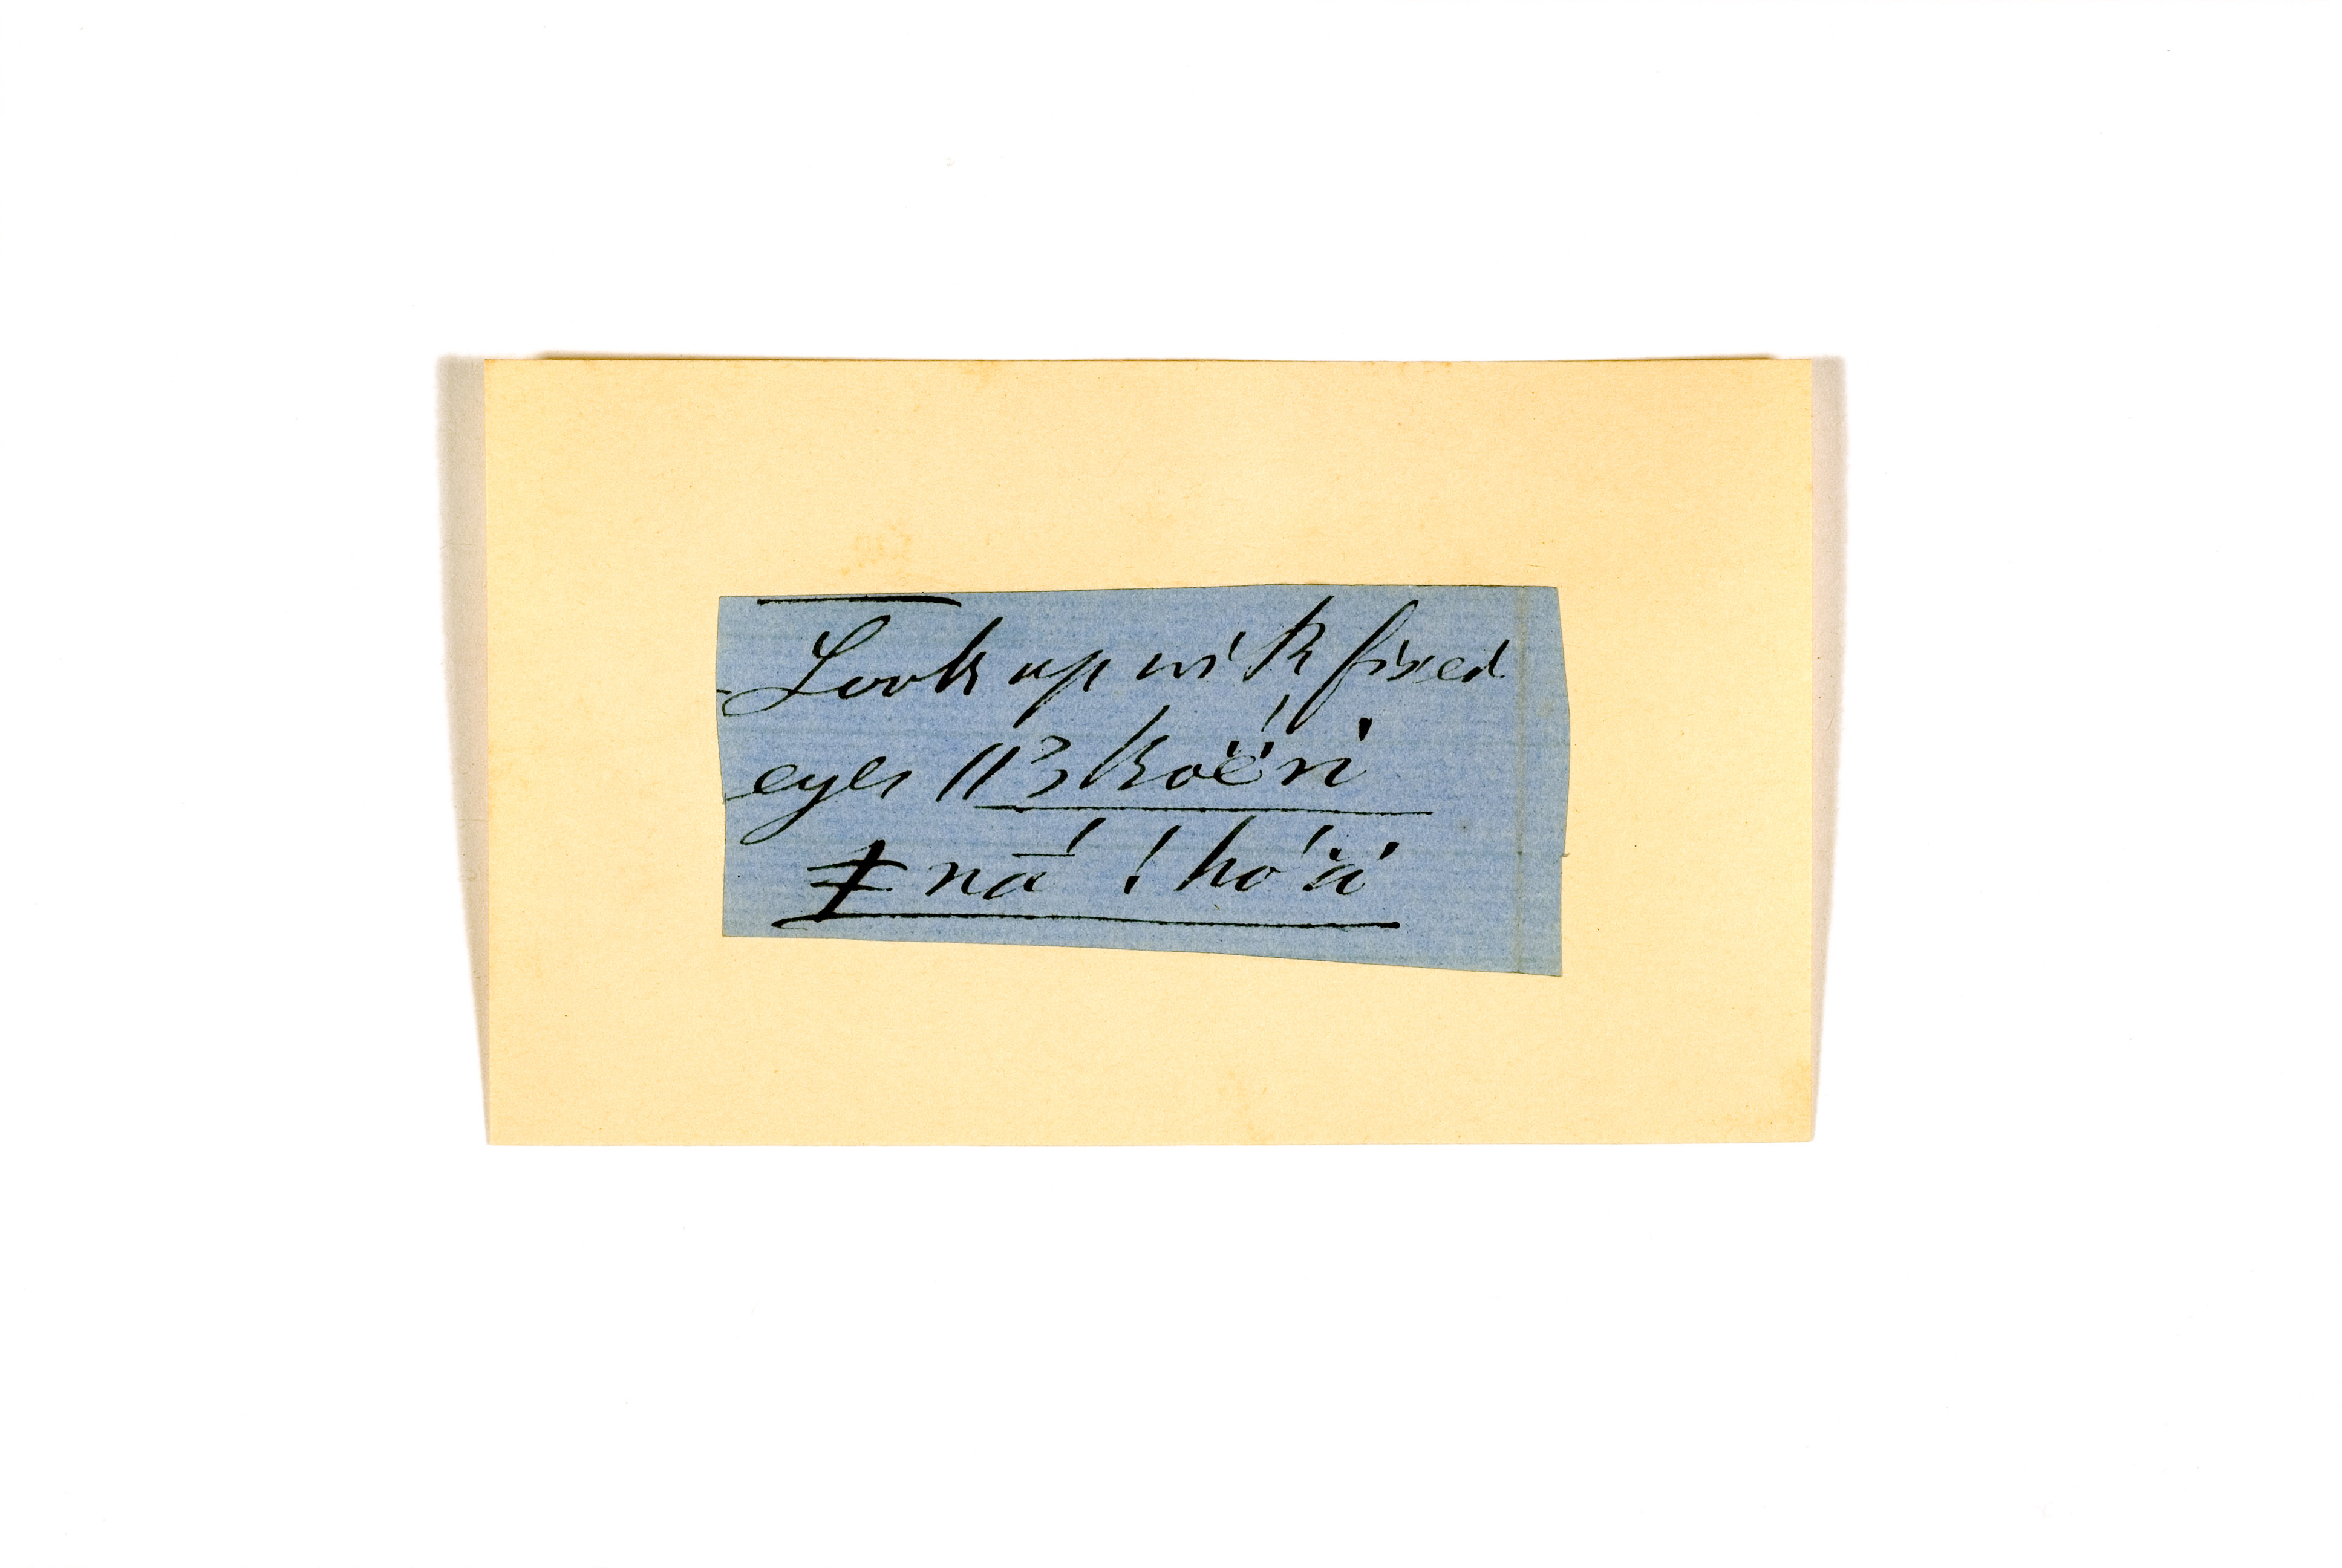 Look up with fixed
eyes ǁ³⁄koë́ni
ǂnā́ ! hó'ä́